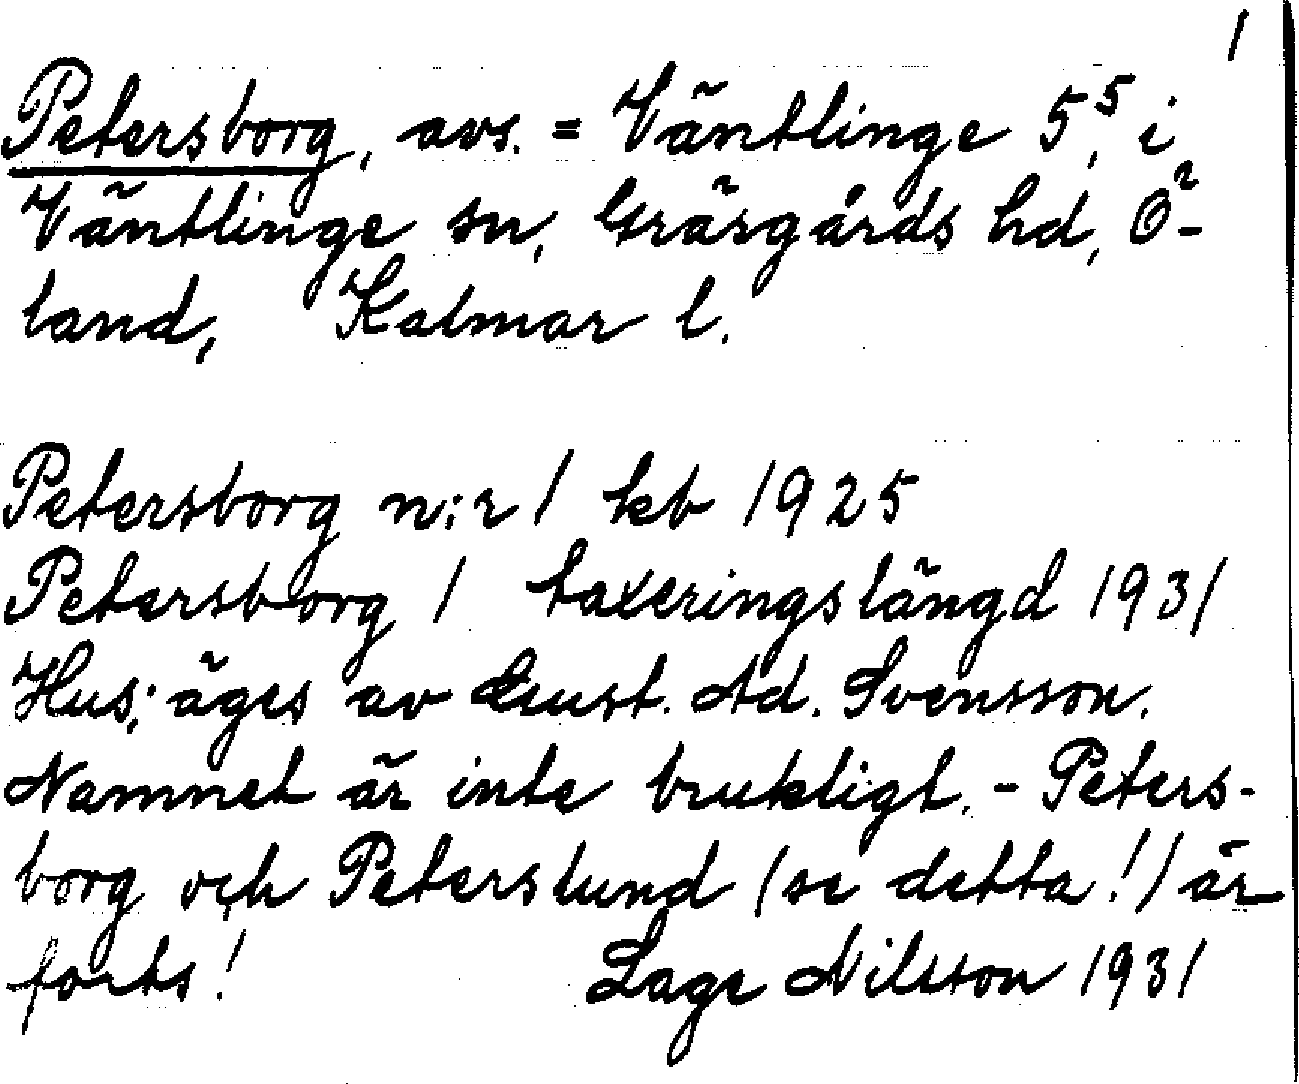 1
Petersborg, avs. = Väntlinge 5⁵, i
Väntlinge sn, Gräsgårds hd, Ö-
land, Kalmar l.
Petersborg n:r 1 kb 1925
Petersborg 1 taxeringslängd 1931
Hus; äges av Gust. Ad. Svensson.
Namnet är inte brukligt. - Peters-
borg och Peterslund (se detta!) är
forts! Lage Nilsson 1931